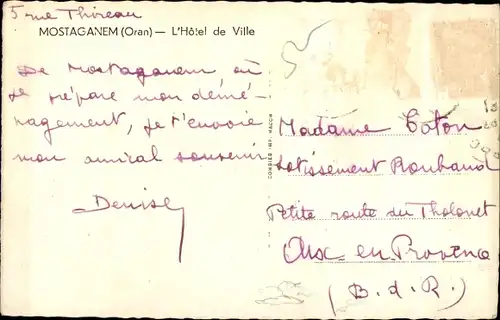 5 rue Thoreau
MOSTAGANEM (Oran) — L'Hôtel de Ville
De Mostaganem, où
je prépare mon démé-
nagement, je t'envoie
mon amical souvenir
Denise
COMBIER IMP. MACON
Madame Coton
Lotissement Roubaud
Petite route du Tholonet
Aix-en Provence
(B.d.R.)